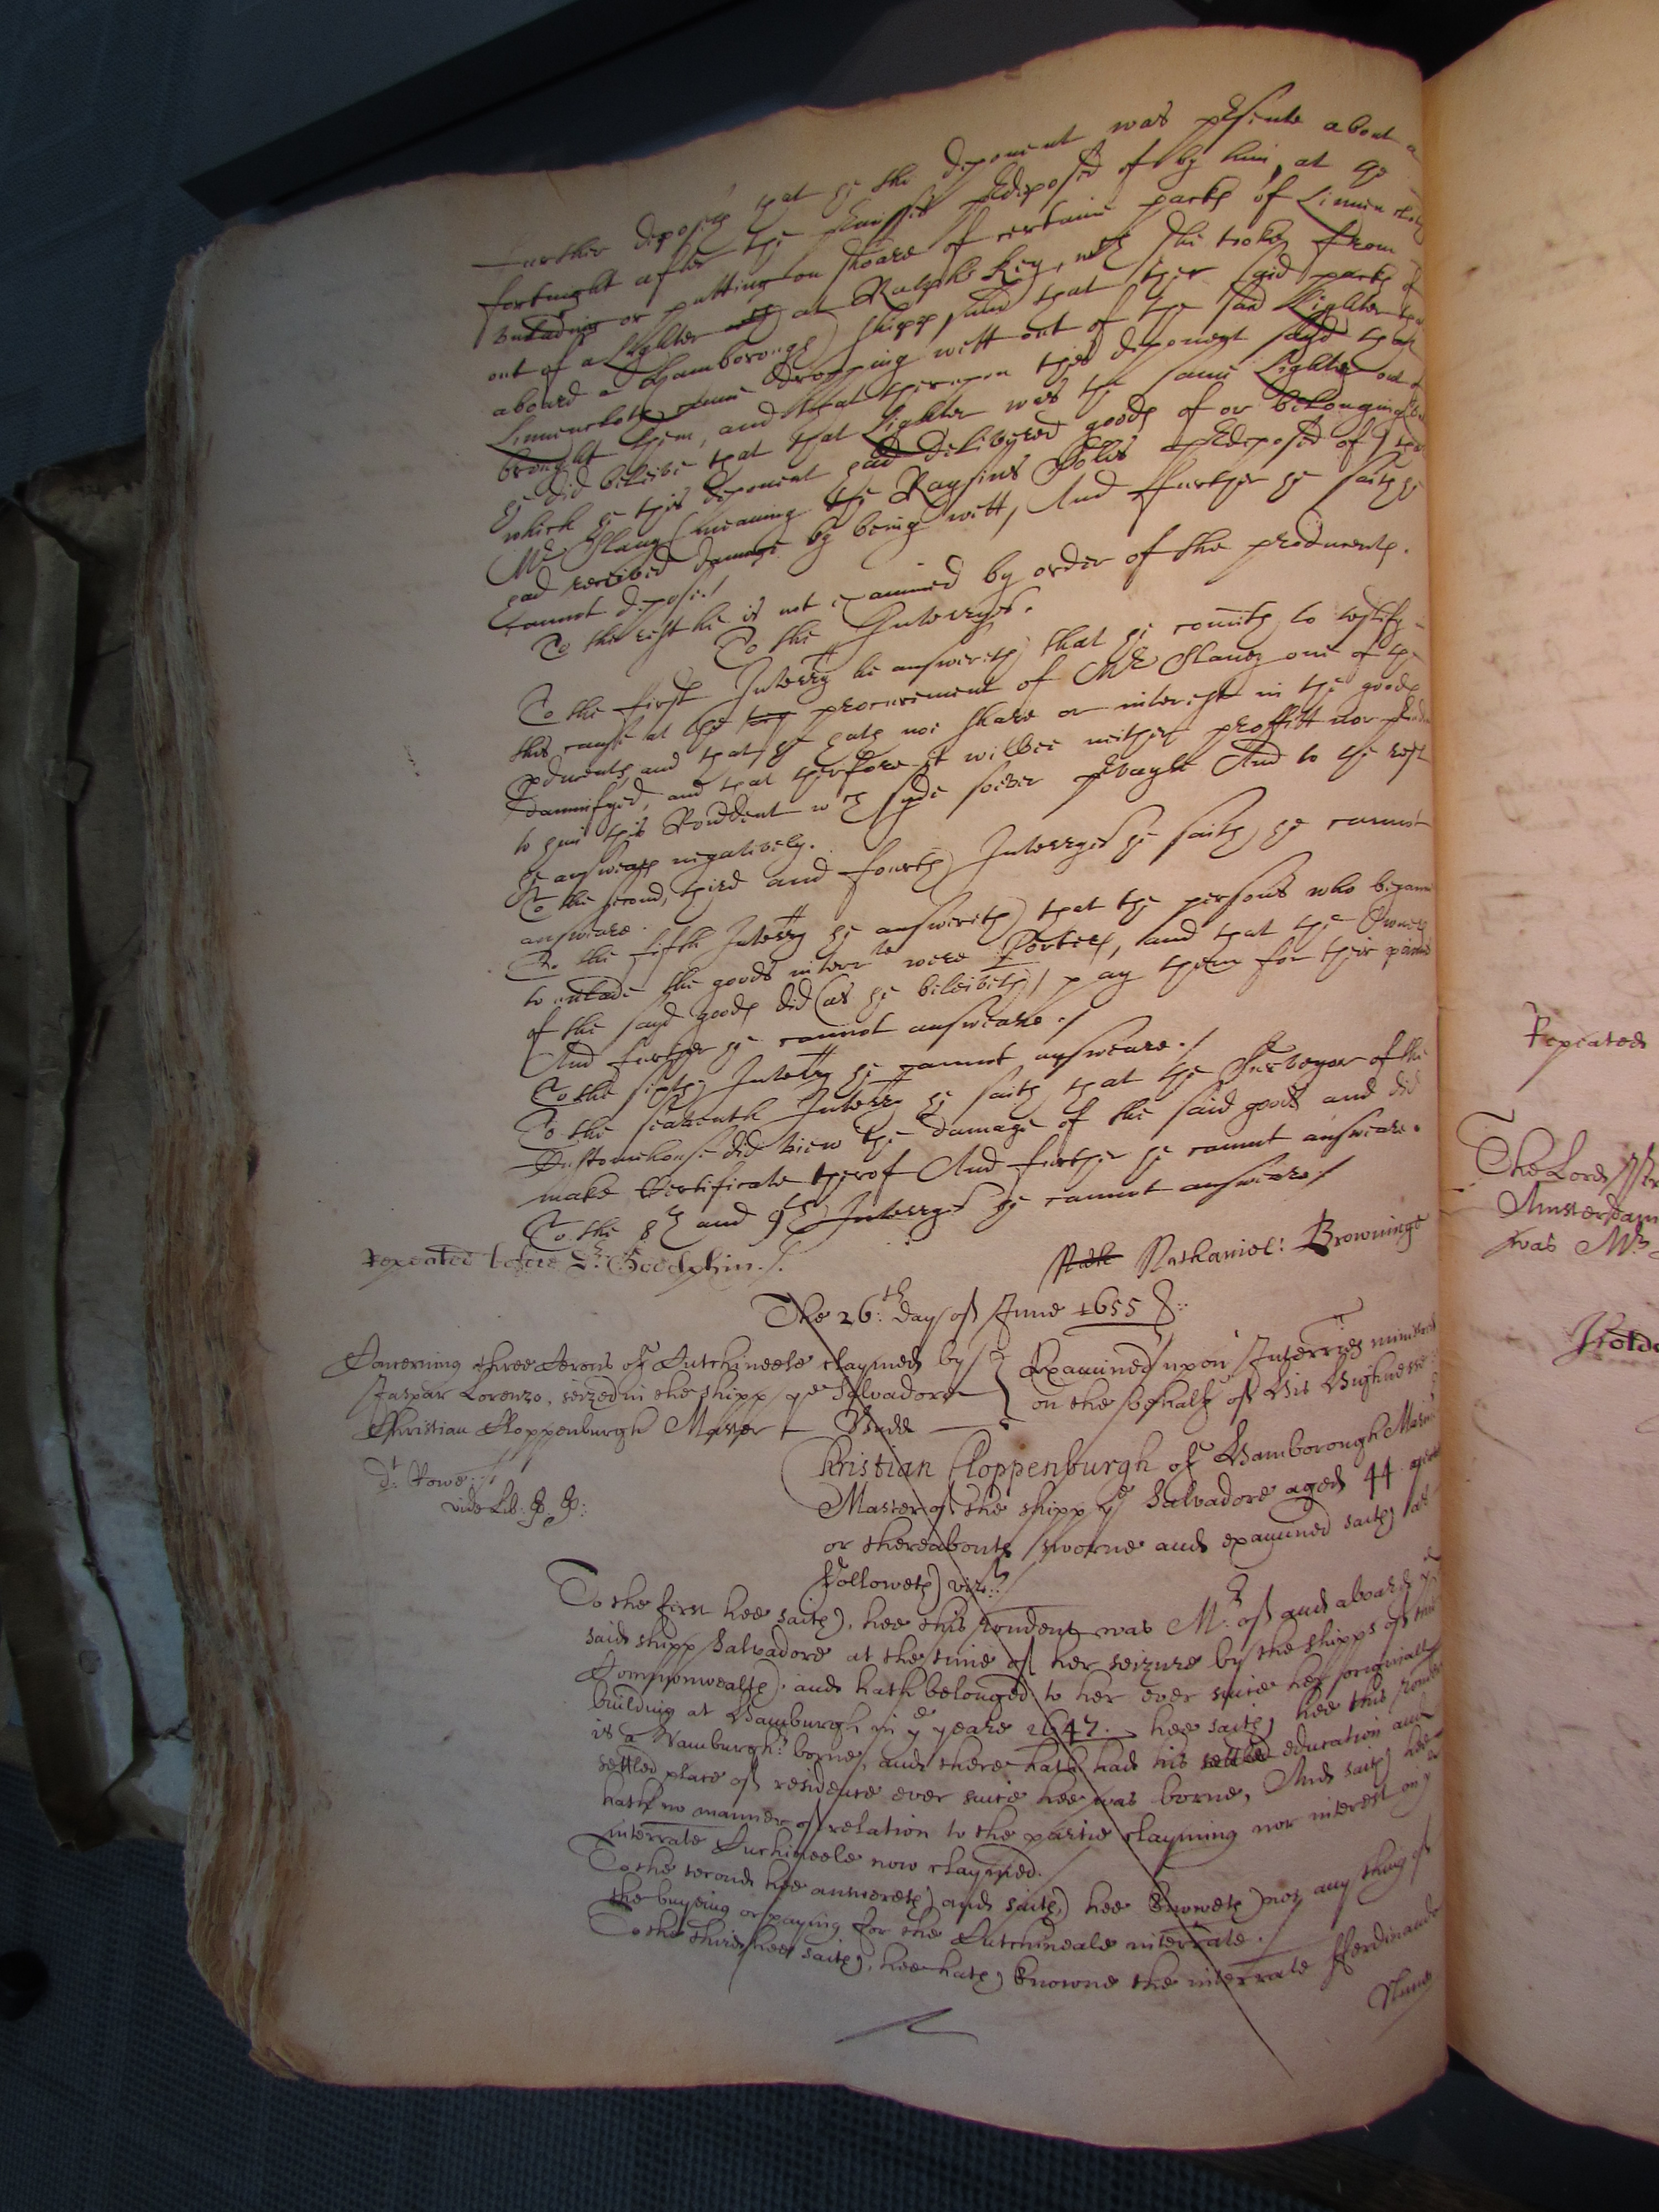 further deposeth that he the deponent was present about a
fortnight after the premisses predeposed of by him, at the
unlading or putting on shoare of certaine packs of Linnen cloth
out of a Lighter at Ralphs Key, which she tooke from
aboard a Hamborough shipp, and that ther said packs of
Linnencloth came dropping wett out of the said Lighter that
brought them, and that thereupon this deponent said that
he did beleive that that Lighter was the same Lighter out of
which he this deponent had delivered goods of or belonging to
Mr Slaney (meaning the Raysins Solis predeposed of) that
had received damage by being wett, And further he saith he
cannot depose./
To the rest he is not examined by order of the producents.
To the Interr~ies.
To the first Interr~y he answereth that he cometh to testify
this cause at the procurement of Mr Slaney one of the
producents, and that he hath noe share or interest in the goods
damnifyed, and that therfore it wilbee neither proffitt nor
to him this Rendent which syde soever prevayle And to the rest
he answeareth negatively.
To the second, third and fourth Interr~ies he saith he cannot
answeare.
To the fifth Interr~y he answereth that the persons who began
to unlade the goods interrate were Porters, and that the Owners
of the said goods did (as he beleiveth) pay them for their paines
And further he cannot answeare./
To the sixth Interr~y he cannot answeare./
To the seaventh Interr~y he saith that the Surveyor of the
Customehouse did view the damage of the said goods and did
make Certificate therof And further he cannot answeare.
To the 8th and 9th Interr~ies he cannot answeare./
Repeated before Dr. Godolphin./.
Nath Nathaniel: Browninge
The 26:th day of June 1655
Concerning three Serons of Cutchineele claymed by
Jaspar Lorenzo, seized in the shipp ye Salvadore
Christian Cloppenburgh Master
Examined upon Interries
on the behalf of His Highnesse
Budd
Dr. Rowe
vide Lib:
Christian Cloppenburgh of Hamborough
Master of the shipp ye Salvadore aged 44 yeares
or thereabouts sworne and examined saith as
Followeth vizt
To the first hee saith, hee this rendent was Mr. of and aboard ye
said shipp Salvadore at the time of her seizure by the shipps of this
Commonwealth, and hath belonged to her ever since her originall
building at Hamburgh in ye yeare 1647. hee saith hee this rendent
is a Hamburgher borne, and there hath had his settled education and
settled place of residence ever since hee was borne, And saith hee
hath no manner of relation to the partie clayming nor interest in ye
interrate Cuchineele now claymed.
To the second hee answereth and saith, hee knoweth not any thing of
the buyeing or paying for the Cutchineale interrate.
To the third hee saith, hee hath knowne the interrate Fferdinando
Nunes
Repeated
The Lord
Amsterdam
was Mr